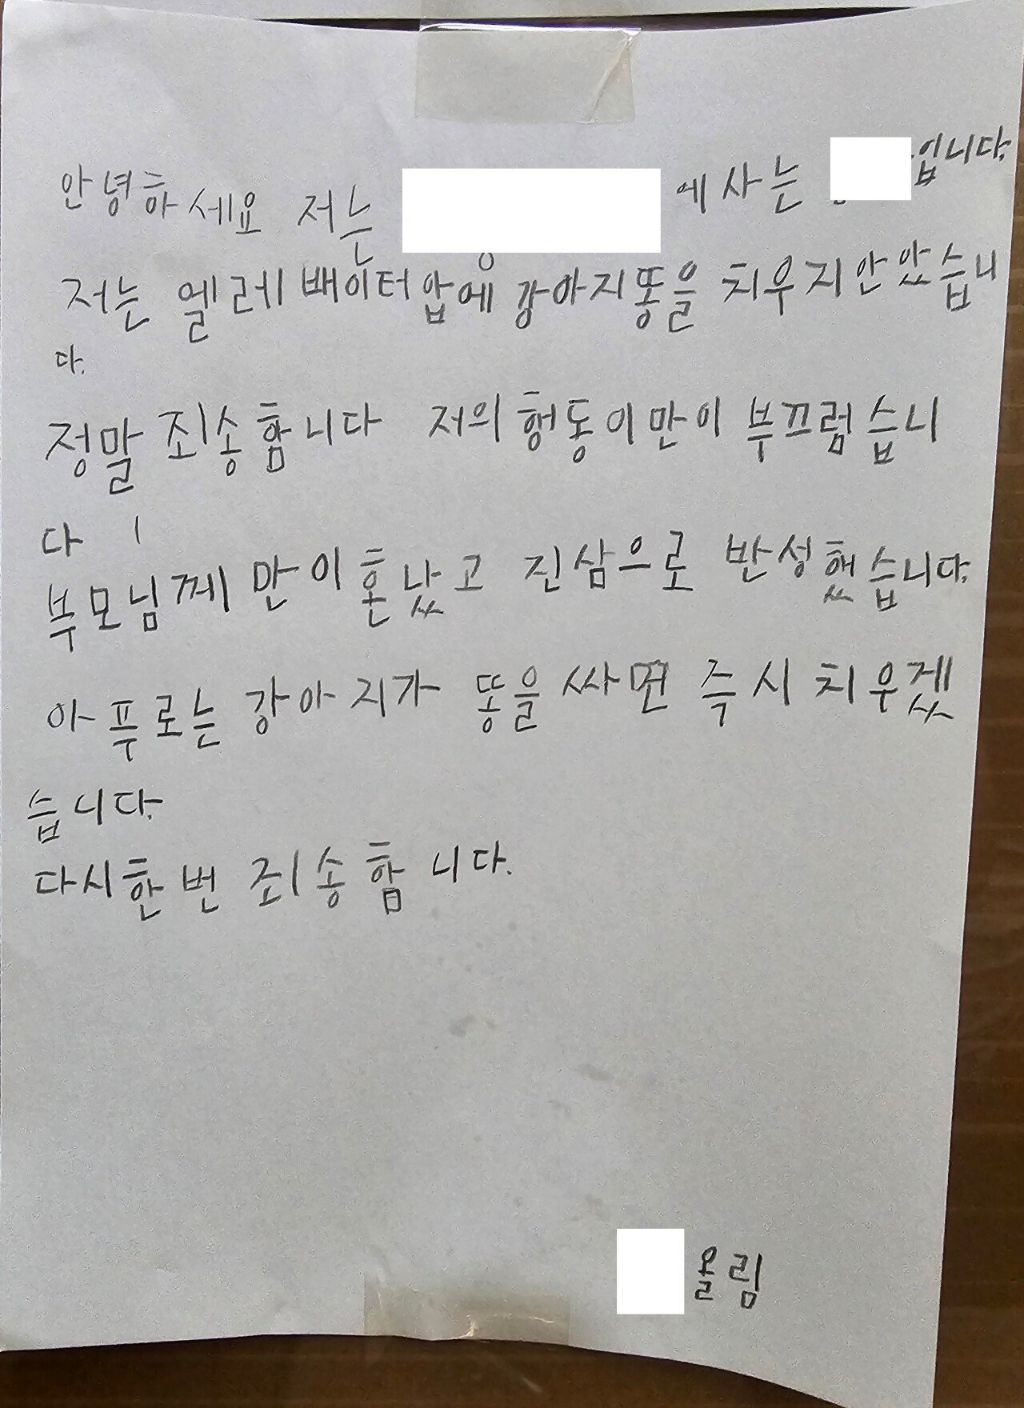 안녕하세요 저는 에사는 입니다.
저는 엘레배이터압에 강아지똥을 치우지안았습니
다.
정말 죄송합니다 저의 행동이만이 부끄럼습니
다
부모님께 만이혼났고 진삼으로 반성했습니다.
아푸로는 강아지가 똥을 싸면 즉시 치우겠
습니다.
다시한번 죄송합니다.
올림